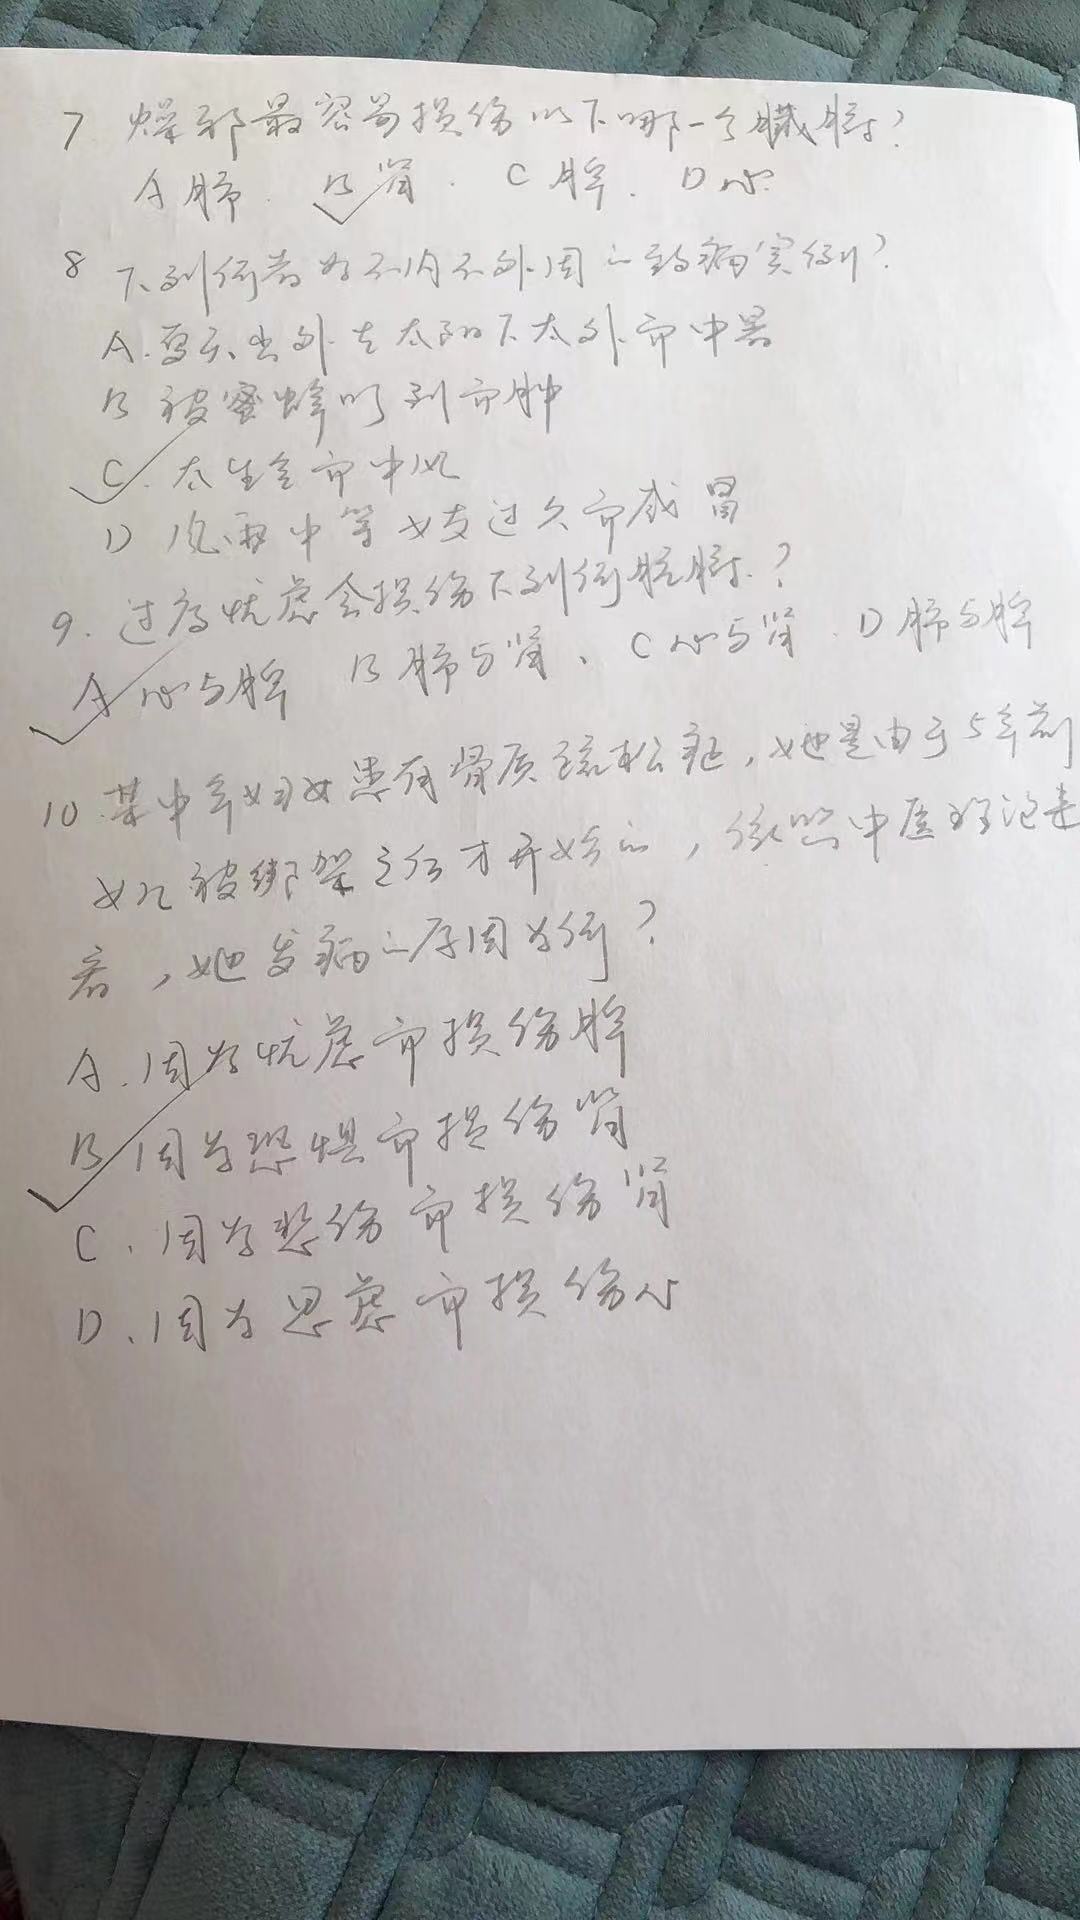 7 燥邪最容易损伤以下哪一个臟腑?
A 肺. B 肾. C 脾. D 心
8 下列何者为不内不外因之致病实例?
A.夏天出外在太阳下太外而中暑
B 被蜜蜂叮到而肿
C.太生气而中风
D 风雨中等女友过久而感冒
9.过度忧虑会损伤下列何脏腑.?
A 心与脾 B 肺与肾、C 心与肾 D 肺与脾
10.某中年妇女患有骨质疏松症,她是由于5年前
女儿被绑架之后才开始的,依照中医理论来
看,她发病之原因为何?
A.因为忧虑而损伤脾
B 因为恐惧而损伤肾
C、因为悲伤而损伤肾
D、因为思虑而损伤心